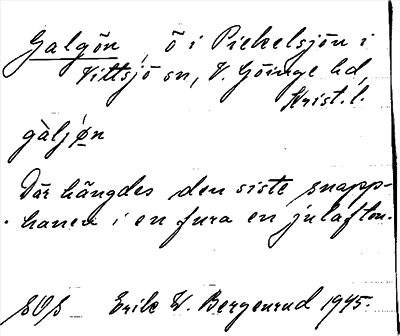 Galgön, ö i Pickelsjön i
Vittsjö sn, V. Göinge hd,
Krist. l.
gàljön
Där hängdes den siste snapp-
hanen i en fura en julafton.
SOS Erik W. Bergenrud 1945.